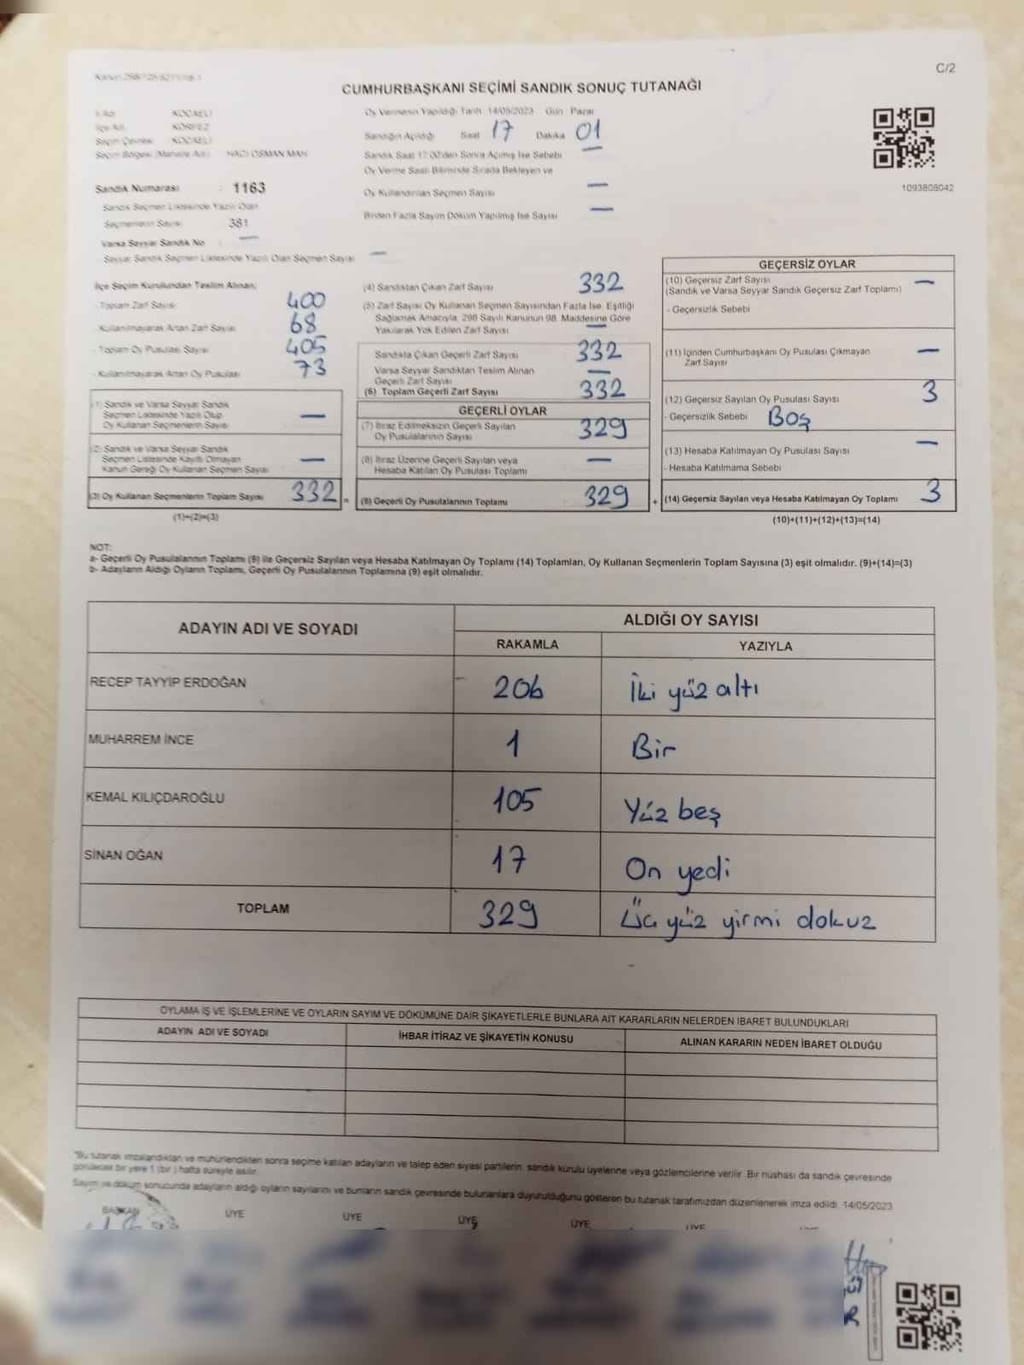 C/2
CUMHURBAŞKANI SEÇİMİ SANDIK SONUÇ TUTANAĞI
İl Adı : KOCAELİ
İlçe Adı : KÖRFEZ
Seçim Çevresi : KOCAELİ
Seçim Bölgesi (Mahalle Adı) : HACI OSMAN MAH.
Sandık Numarası : 1163
Sandık Seçmen Listesinde Yazılı Olan
Seçmenlerin Sayısı : 381
Varsa Seyyar Sandık No : —
Seyyar Sandık Seçmen Listesinde Yazılı Olan Seçmen Sayısı —
Oy Vermenin Yapıldığı Tarih 14/05/2023 Gün Pazar
Sandığın Açıldığı Saat 17 Dakika 01
Sandık Saat 17:00'den Sonra Açılmış İse Sebebi —
Oy Verme Saati Bitiminde Sırada Bekleyen ve
Oy Kullandırılan Seçmen Sayısı —
Birden Fazla Sayım Döküm Yapılmış İse Sayısı —
1093808042
İlçe Seçim Kurulundan Teslim Alınan;
- Toplam Zarf Sayısı 400
- Kullanılmayarak Artan Zarf Sayısı 68
- Toplam Oy Pusulası Sayısı 405
- Kullanılmayarak Artan Oy Pusulası 73
(1) Sandık ve Varsa Seyyar Sandık
Seçmen Listesinde Yazılı Olup
Oy Kullanan Seçmenlerin Sayısı —
(2) Sandık ve Varsa Seyyar Sandık
Seçmen Listesinde Kayıtlı Olmayan
Kanun Gereği Oy Kullanan Seçmen Sayısı —
(3) Oy Kullanan Seçmenlerin Toplam Sayısı 332 =
(1)+(2)=(3)
(4) Sandıktan Çıkan Zarf Sayısı 332
(5) Zarf Sayısı Oy Kullanan Seçmen Sayısından Fazla İse, Eşitliği
Sağlamak Amacıyla, 298 Sayılı Kanunun 98. Maddesine Göre
Yakılarak Yok Edilen Zarf Sayısı —
Sandıkta Çıkan Geçerli Zarf Sayısı 332
Varsa Seyyar Sandıktan Teslim Alınan
Geçerli Zarf Sayısı —
(6) Toplam Geçerli Zarf Sayısı 332
GEÇERLİ OYLAR
(7) İtiraz Edilmeksizin Geçerli Sayılan
Oy Pusulalarının Sayısı 329
(8) İtiraz Üzerine Geçerli Sayılan veya
Hesaba Katılan Oy Pusulası Toplamı —
(9) Geçerli Oy Pusulalarının Toplamı 329 +
GEÇERSİZ OYLAR
(10) Geçersiz Zarf Sayısı —
(Sandık ve Varsa Seyyar Sandık Geçersiz Zarf Toplamı)
- Geçersizlik Sebebi
(11) İçinden Cumhurbaşkanı Oy Pusulası Çıkmayan
Zarf Sayısı —
(12) Geçersiz Sayılan Oy Pusulası Sayısı 3
- Geçersizlik Sebebi Boş
(13) Hesaba Katılmayan Oy Pusulası Sayısı —
- Hesaba Katılmama Sebebi
(14) Geçersiz Sayılan veya Hesaba Katılmayan Oy Toplamı 3
(10)+(11)+(12)+(13)=(14)
NOT:
a- Geçerli Oy Pusulalarının Toplamı (9) ile Geçersiz Sayılan veya Hesaba Katılmayan Oy Toplamı (14) Toplamları, Oy Kullanan Seçmenlerin Toplam Sayısına (3) eşit olmalıdır. (9)+(14)=(3)
b- Adayların Aldığı Oyların Toplamı, Geçerli Oy Pusulalarının Toplamına (9) eşit olmalıdır.
ADAYIN ADI VE SOYADI
ALDIĞI OY SAYISI
RAKAMLA YAZIYLA
RECEP TAYYİP ERDOĞAN 206 İki yüz altı
MUHARREM İNCE 1 Bir
KEMAL KILIÇDAROĞLU 105 Yüz beş
SİNAN OĞAN 17 On yedi
TOPLAM 329 Üç yüz yirmi dokuz
OYLAMA İŞ VE İŞLEMLERİNE VE OYLARIN SAYIM VE DÖKÜMÜNE DAİR ŞİKAYETLERLE BUNLARA AİT KARARLARIN NELERDEN İBARET BULUNDUKLARI
ADAYIN ADI VE SOYADI İHBAR İTİRAZ VE ŞİKAYETİN KONUSU ALINAN KARARIN NEDEN İBARET OLDUĞU
*Bu tutanak imzalandıktan ve mühürlendikten sonra seçime katılan adayların ve talep eden siyasi partilerin, sandık kurulu üyelerine veya gözlemcilerine verilir. Bir nüshası da sandık çevresinde
görülecek bir yere 1 (bir ) hafta süreyle asılır.
Sayım ve döküm sonucunda adayların aldığı oyların sayılarını ve bunların sandık çevresinde bulunanlara duyurulduğunu gösteren bu tutanak tarafımızdan düzenlenerek imza edildi. 14/05/2023
BAŞKAN ÜYE ÜYE ÜYE ÜYE ÜYE ÜYE